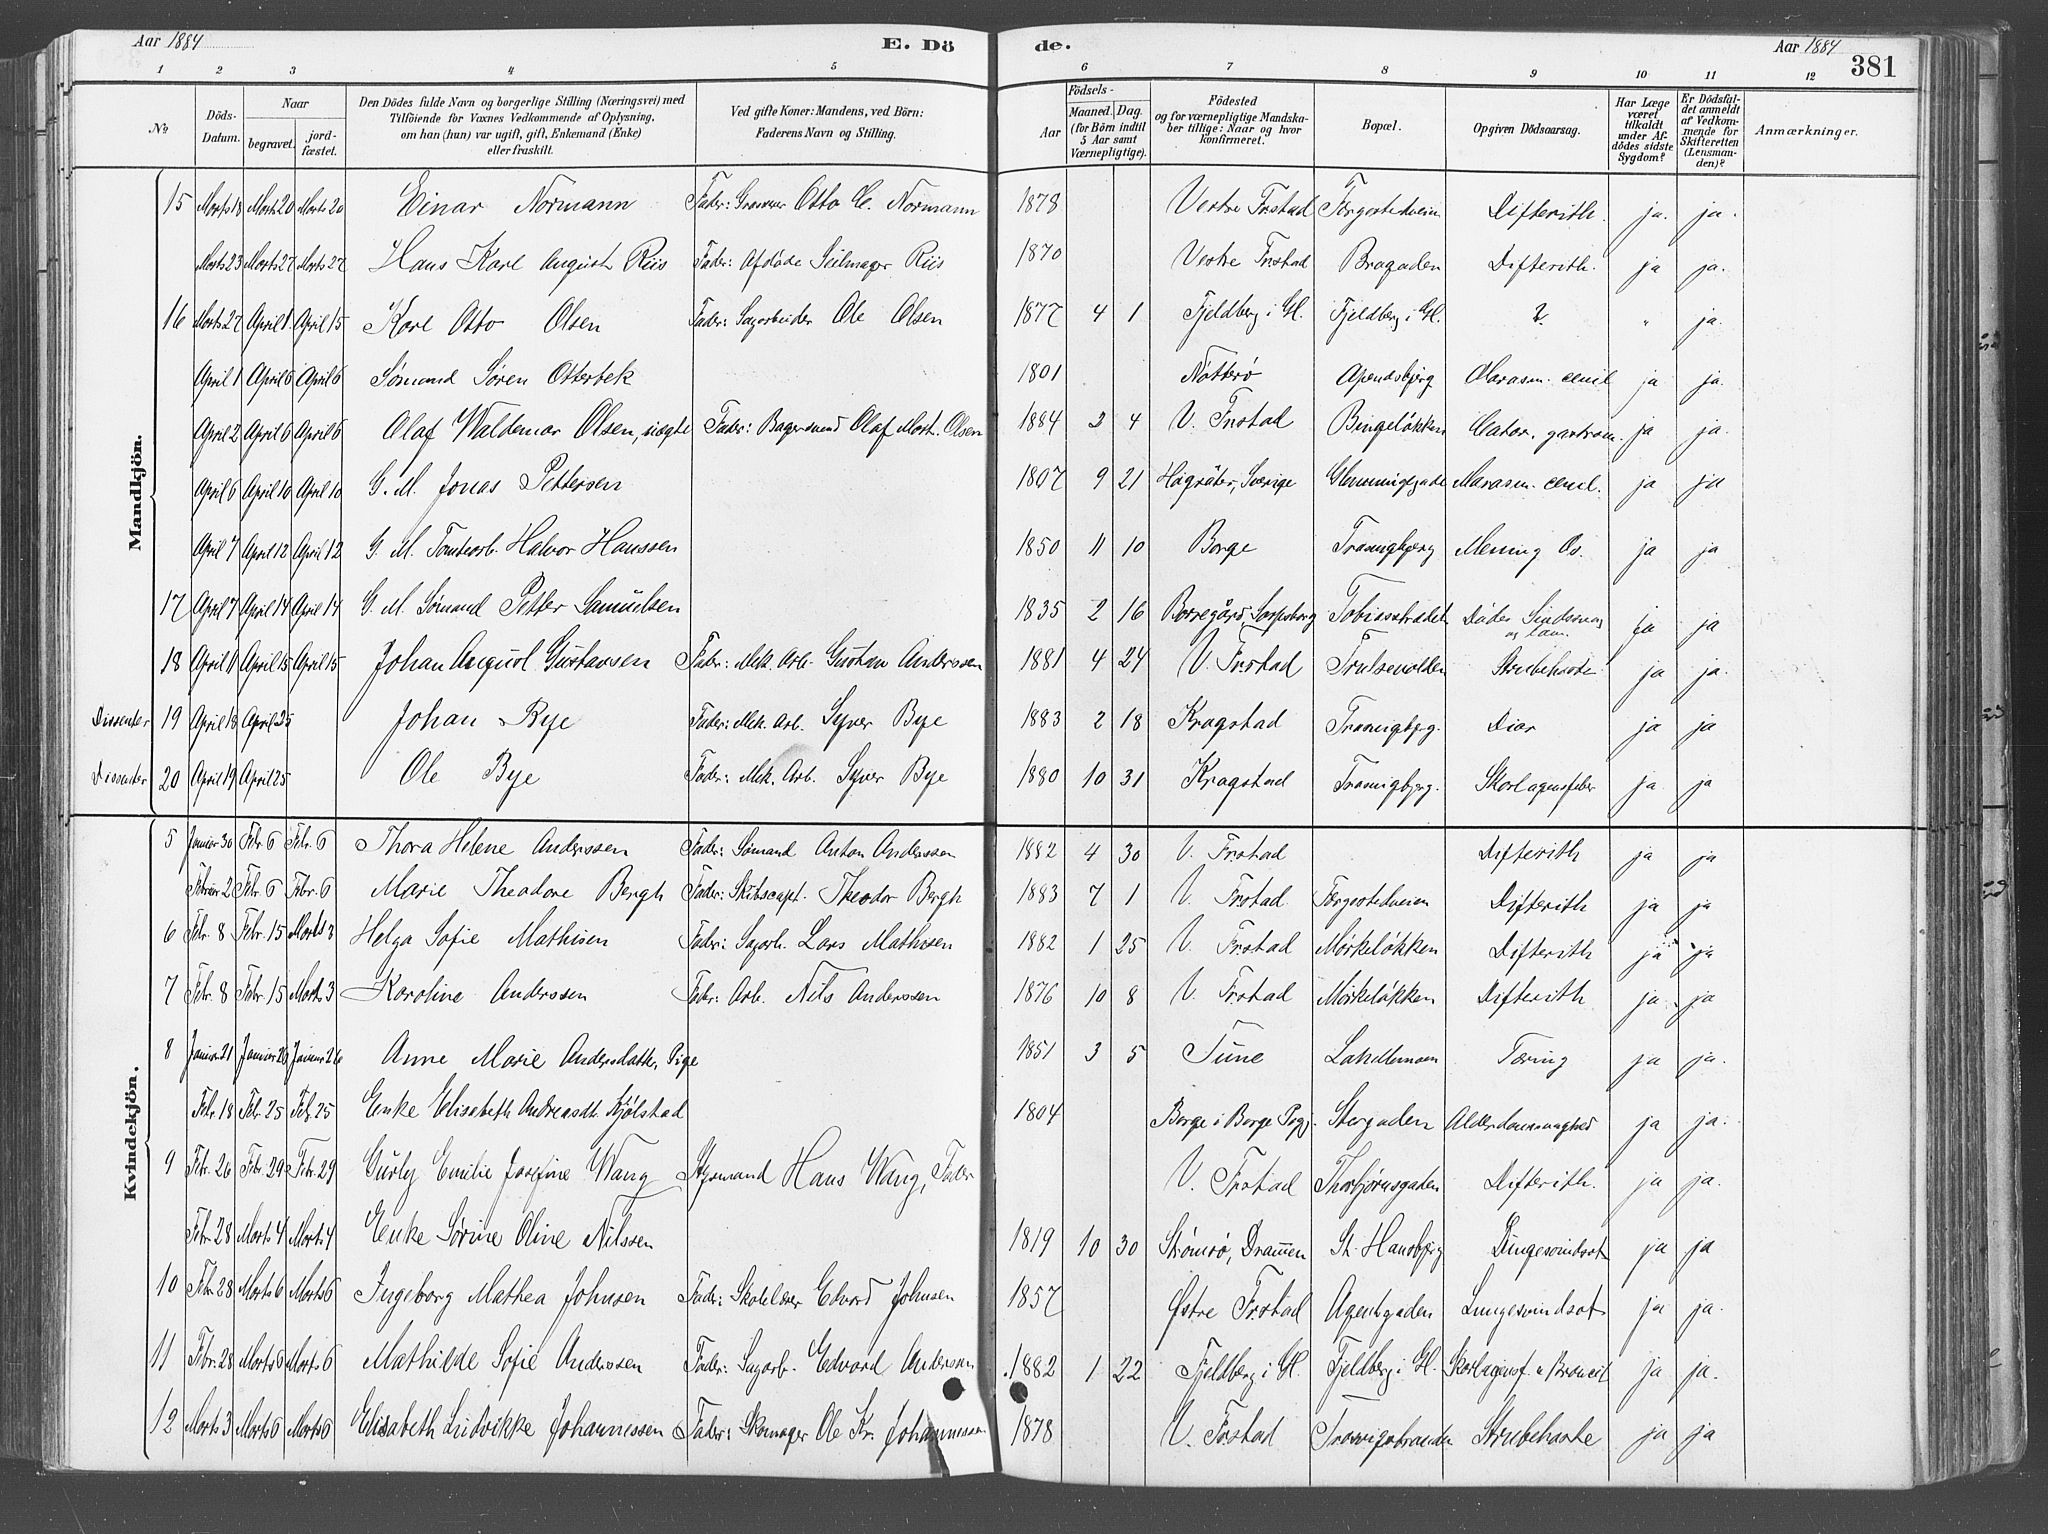 Aar 1884 E. Dö de. Aar 1884 381
1 2 3 4 5 6 7 8 9 10 11 12
№ Döds-Datum. Naar begravet. jordfæstet. Den Dödes fulde Navn og borgerlige Stilling (Næringsvei) med Tilföiende for Voxnes Vedkommende af Oplysning, om han (hun) var ugift, gift, Enkemand (Enke) eller fraskilt. Ved gifte Koner: Mandens, ved Börn: Faderens Navn og Stilling. Födsels- Aar Maaned. Dag. (for Börn indtil 5 Aar samt Værnepligtige). Födested og for værnepligtige Mandskaber tillige: Naar og hvor konfirmeret. Bopæl. Opgiven Dödsaarsag. Har Læge været tilkaldt under Afdödes sidste Sygdom? Er Dödsfaldet anmeldt af Vedkommende for Skifteretten (Lensmanden)? Anmærkninger.
Mandkjön.
15 Marts 18 Marts 20 Marts 20 Einar Normann Fader: Otto C. Normann 1878 Vestre Frstad Færgestedveien Difterith. ja. ja.
Marts 23 Marts 27 Marts 27 Hans Karl August Riis Fader: Afdöde Seilmager Riis 1870 Vestre Frstad Brogaden Difterith. ja ja.
16 Marts 27 April 1 April 15 Karl Otto Olsen Fader: Sagarbeider Ole Olsen 1877 4 1 Fjeldberg i Gl. Fjeldberg i Gl. ? " ja
April 1 April 6 April 6 Sømand Søren Otterbek 1801 Nøtterø Apenæsbjerg Marasm. senil ja ja.
April 2 April 6 April 6 Olaf Waldemar Olsen, uægte Fader: Bagersvend Olaf Mart. Olsen 1884 2 4 V. Frstad Bingeløkken Catar. gastrom. ja ja.
April 6 April 10 April 10 G. M. Jonas Pettersen 1807 9 21 Högsäter, Sverige Glemmingegade Marasm. senil. ja ja
April 7 April 12 April 12 G. M. Tomtearb. Halvor Hanssen 1850 11 10 Borge Trosvigbjerg Mening Os. ja ja
17 April 7 April 14 April 14 G. M. Sømand Petter Samuelsen 1835 2 16 Borregård, Sarpsborg Tobiasstrædet Dødes Sindssvag og Lam. ja ja
18 April 11 April 15 April 15 Johan August Gustavsen Fader: Mek. Arb. Gustav Anderssen 1881 4 24 V. Frstad Trulsevolden Strubehoste ja ja.
Dissenter 19 April 18 April 25 Johan Bye Fader: Mek. Arb. Syver Bye 1883 2 18 Kragstad Trosvigbjerg. Diar ja ja
Dissenter 20 April 19 April 25 Ole Bye Fader: Mek. Arb. Syver Bye 1880 10 31 Kragstad Trosvigbjerg. Skarlagensfeber ja ja
Kvindekjön.
5 Januar 30 Febr. 6 Febr. 6 Thora Helene Anderssen Fader: Sømand Anton Anderssen 1882 4 30 V. Frstad Difterith ja ja
Februar 2 Febr. 6 Febr. 6 Marie Theodore Bergh Fader: Skibscapt. Theodor Bergh 1883 7 1 V. Frstad Færgestedveien Difterith ja ja
6 Febr. 8 Febr. 15 Marts 3 Helga Sofie Mathisen Fader: Sagarb. Lars Mathisen 1882 1 25 V. Frstad Mørkeløkken Difterith ja ja
7 Febr. 8 Febr. 15 Marts 3 Karoline Anderssen Fader: Arb. Nils Anderssen 1876 10 8 V. Frstad Mørkeløkken Difterith ja ja
8 Januar 21 Januar 26 Januar 26 Anne Marie Andersdatter, Pige 1851 3 5 Tune Lahellemoen Tæring ja ja.
Febr. 18 Febr. 25 Feb. 25 Enke Elisabeth Andreasdt. Kjølstad 1804 Borge i Borge Pgj. Storgaden Alderdomssvaghed ja ja.
9 Febr. 26 Febr. 29 Febr. 29 Gurly Emilie Josefine Wang Styrmand Hans Wang, Fader V. Frstad Thorbjørnsgaden Difterith. ja ja.
Febr. 28 Marts 4 Marts 4 Enke Sørine Oline Nilssen 1819 10 30 Strømsø, Drammen St. Hansbjerg Lungesvindsot ja ja
10 Febr. 28 Marts 6 Marts 6 Ingeborg Mathea Johnsen Fader: Skolelærer Edvard Johnsen 1857 Østre Frstad Agentgaden Lungesvindsot ja ja.
11 Febr. 28 Marts 6 Marts 6 Mathilde Sofie Anderssen Fader: Sagarb. Edvard Anderssen 1882 1 22 Fjeldberg i Gl. Fjeldberg i Gl. Skarlagensf. ja ja.
12 Marts 3 Marts 6 Marts 6 Elisabeth Ludvikke Johannessen Fader: Skomager Ole Kr. Johannessen 1878 V. Frstad Trosvigstranden Strubehoste ja ja